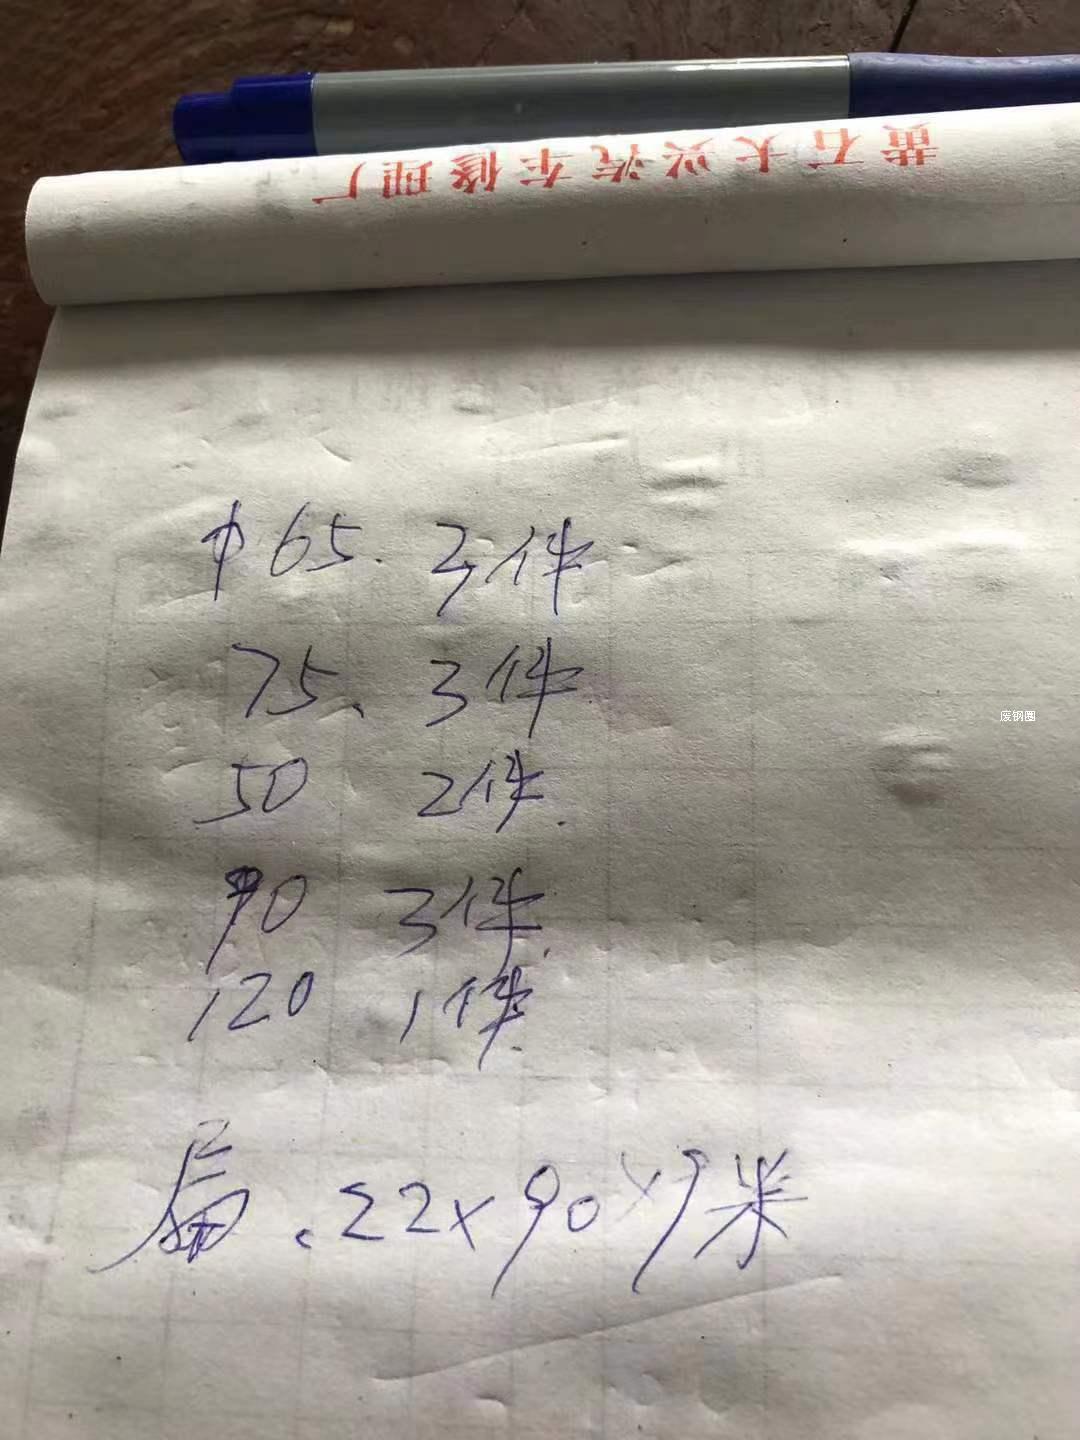 黄石大兴汽车修理厂
φ65. 3件
75、3件
废钢圈
50 2件.
90 3件.
120 1件.
扁.22×90×9米